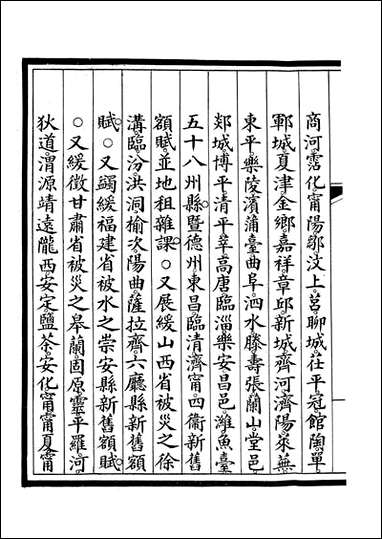 商河。霑化。甯陽。鄒。汶上。莒。聊城。茌平。冠。館陶。單。
鄆城。夏津。金鄉。嘉祥。章邱。新城。齊河。濟陽。萊蕪。
東平。樂陵。濱。蒲臺。曲阜。泗水。滕。壽張。蘭山。堂邑。
郯城。博平。清平。莘。高唐。臨淄。樂安。昌邑。濰。魚臺。
五十八州縣。暨德州。東昌。臨清。濟甯。四衞新舊
額賦。並地租雜課。○又展緩山西省被災之徐
溝。臨汾。洪洞。榆次。陽曲。薩拉齊。六廳縣新舊額
賦。○又蠲緩福建省被水之崇安縣新舊額賦。
○又緩徵甘肅省被災之皋蘭。固原。靈。平羅。河。
狄道。渭源。靖遠。隴西。安定。鹽茶。安化。甯。甯夏。甯